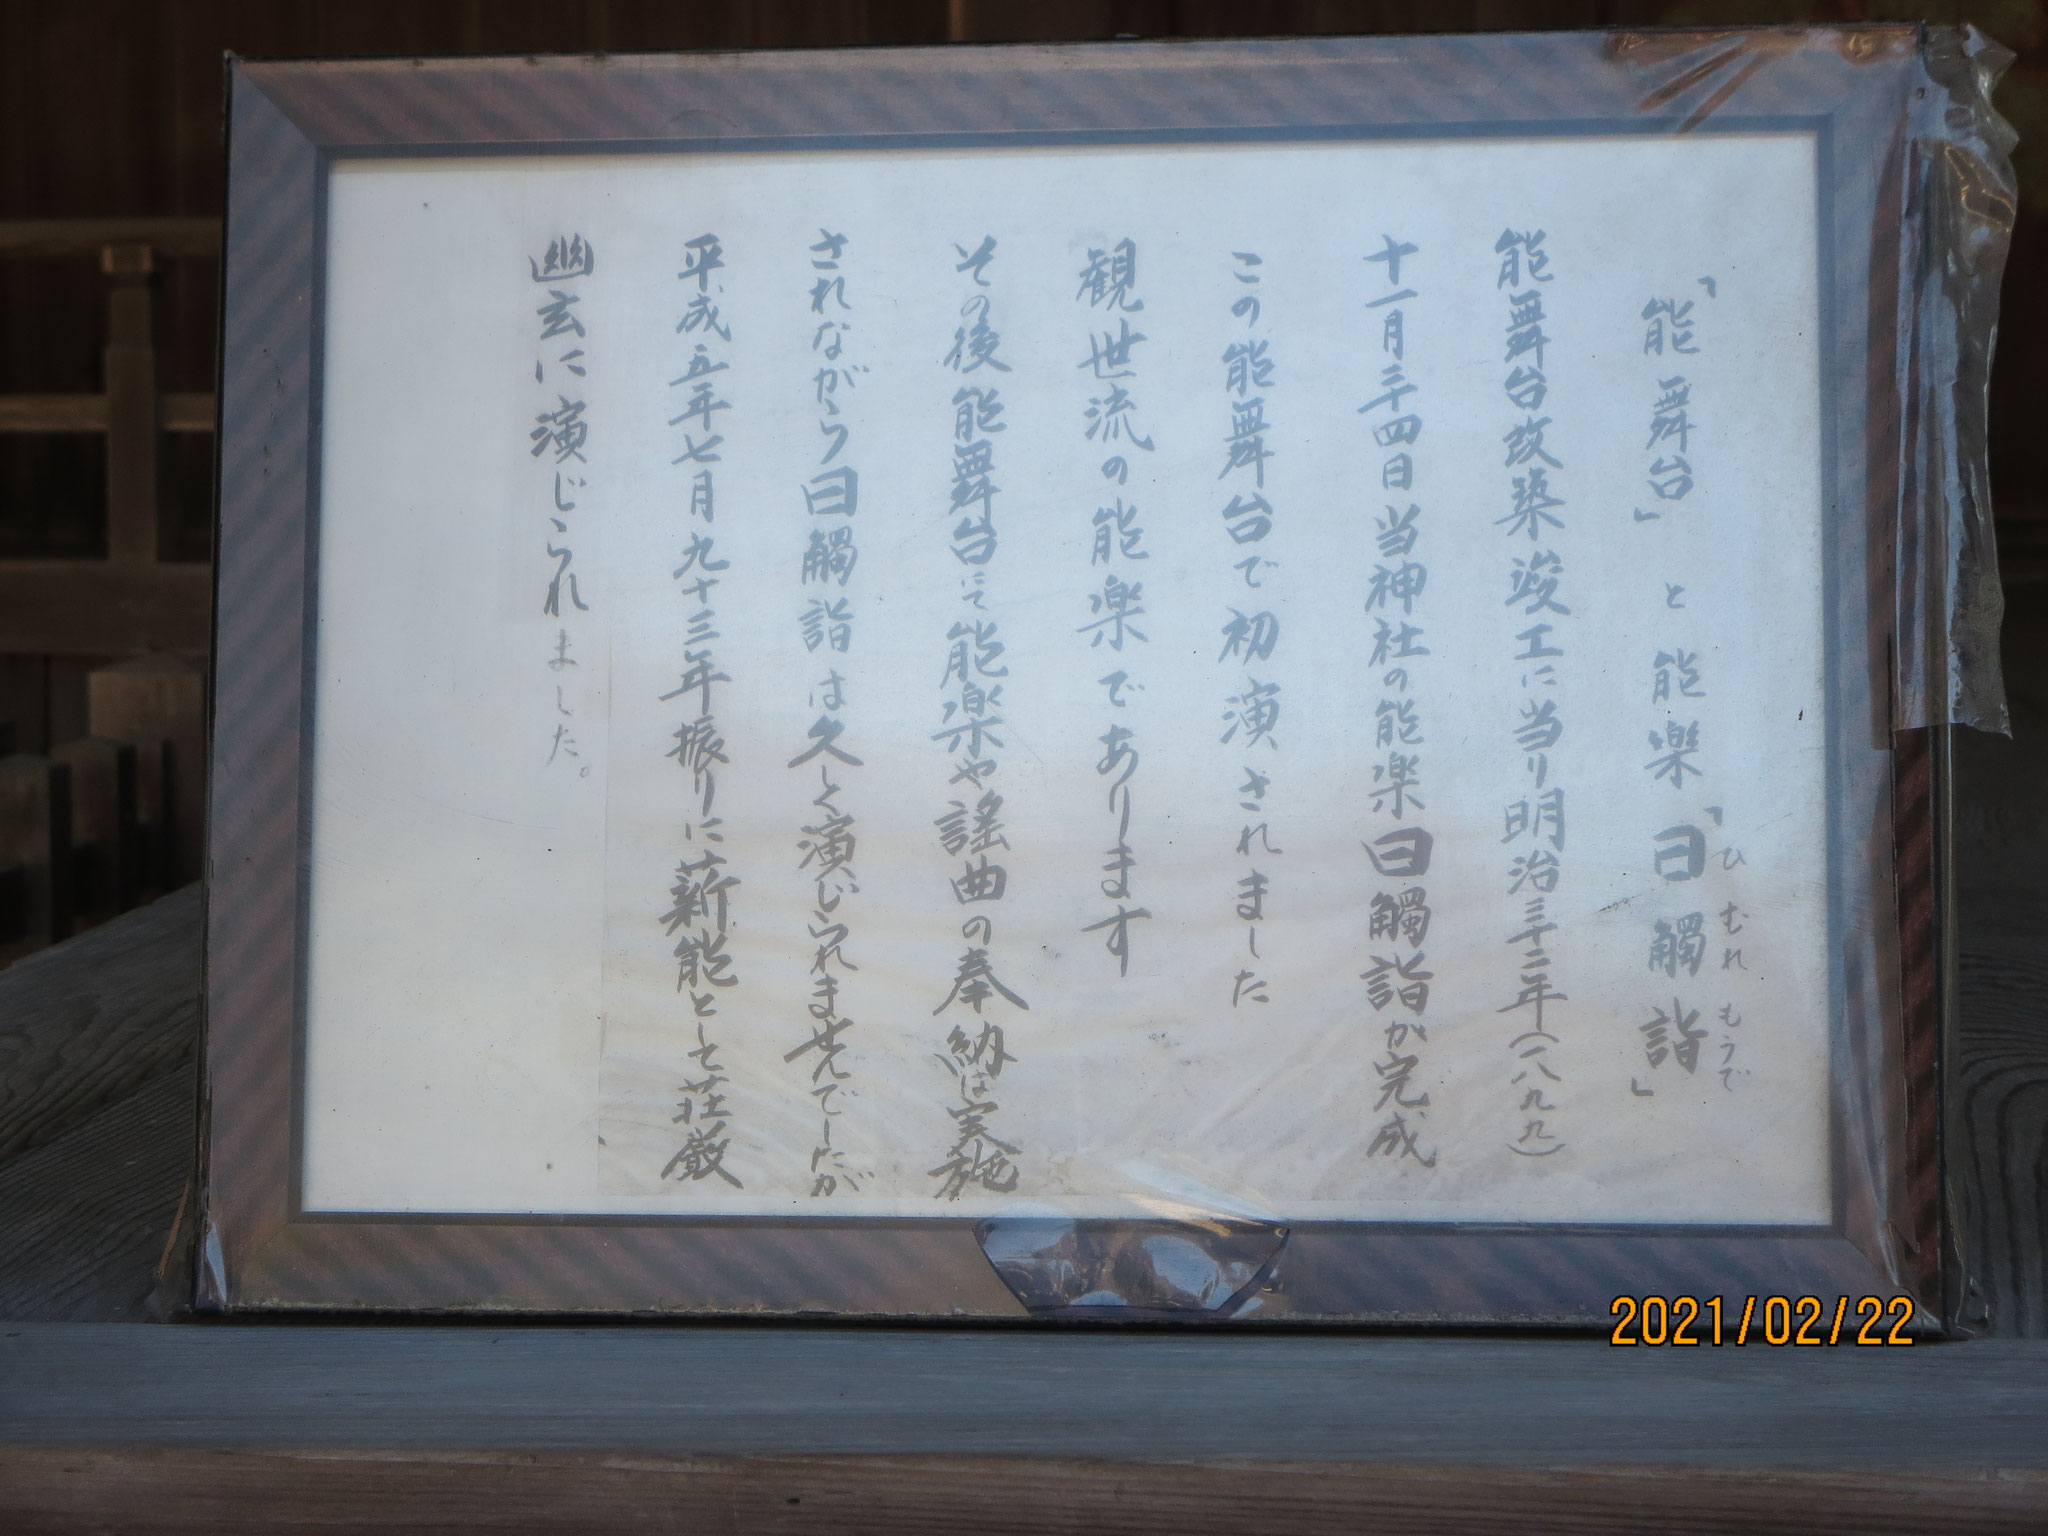 「能舞台」と能楽「日觸詣」
ひむれもうで
能舞台改築竣工に当り明治三十二年(一八九九)
十一月二十四日当神社の能楽日觸詣が完成
この能舞台で初演されました
観世流の能楽であります
その後能舞台にて能楽や謡曲の奉納は実施
されながら日觸詣は久しく演じられませんでしたが
平成五年七月九十三年振りに薪能として荘厳
幽玄に演じられました。
2021/02/22